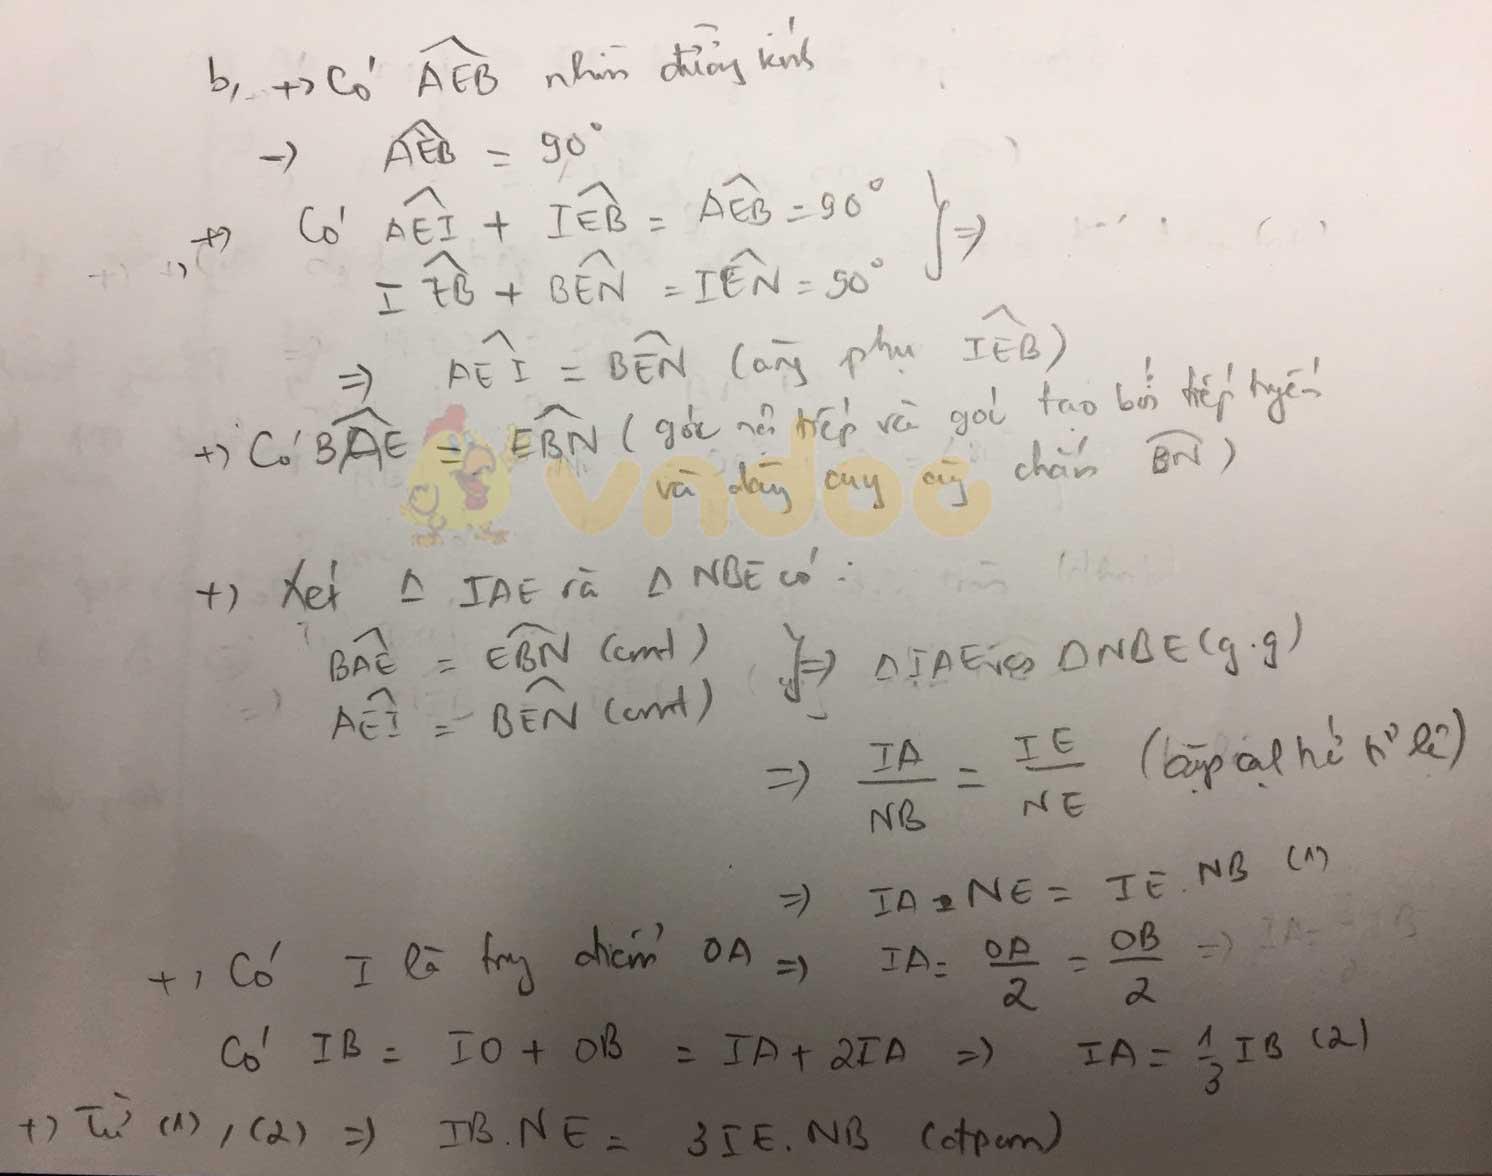 b, +) Có AEB nhìn đường kính
→ AEB = 90°
+) Có AEI + IEB = AEB = 90°
IEB + BEN = IEN = 90° } ⇒
⇒ AEI = BEN (cùng phụ IEB)
+) Có BAE = EBN (góc nội tiếp và góc tạo bởi tiếp tuyến
và dây cung cùng chắn BN)
vndoc
+) Xét Δ IAE và Δ NBE có:
BAE = EBN (cmt) } ⇒ Δ IAE ∽ Δ NBE (g.g)
AEI = BEN (cmt)
⇒ IA/NB = IE/NE (cặp cạnh tỉ lệ)
⇒ IA.NE = IE.NB (1)
+, Có I là trung điểm OA ⇒ IA = OA/2 = OB/2
Có IB = IO + OB = IA + 2IA ⇒ IA = 1/3 IB (2)
+) Từ (1), (2) ⇒ IB.NE = 3IE.NB (đpcm)